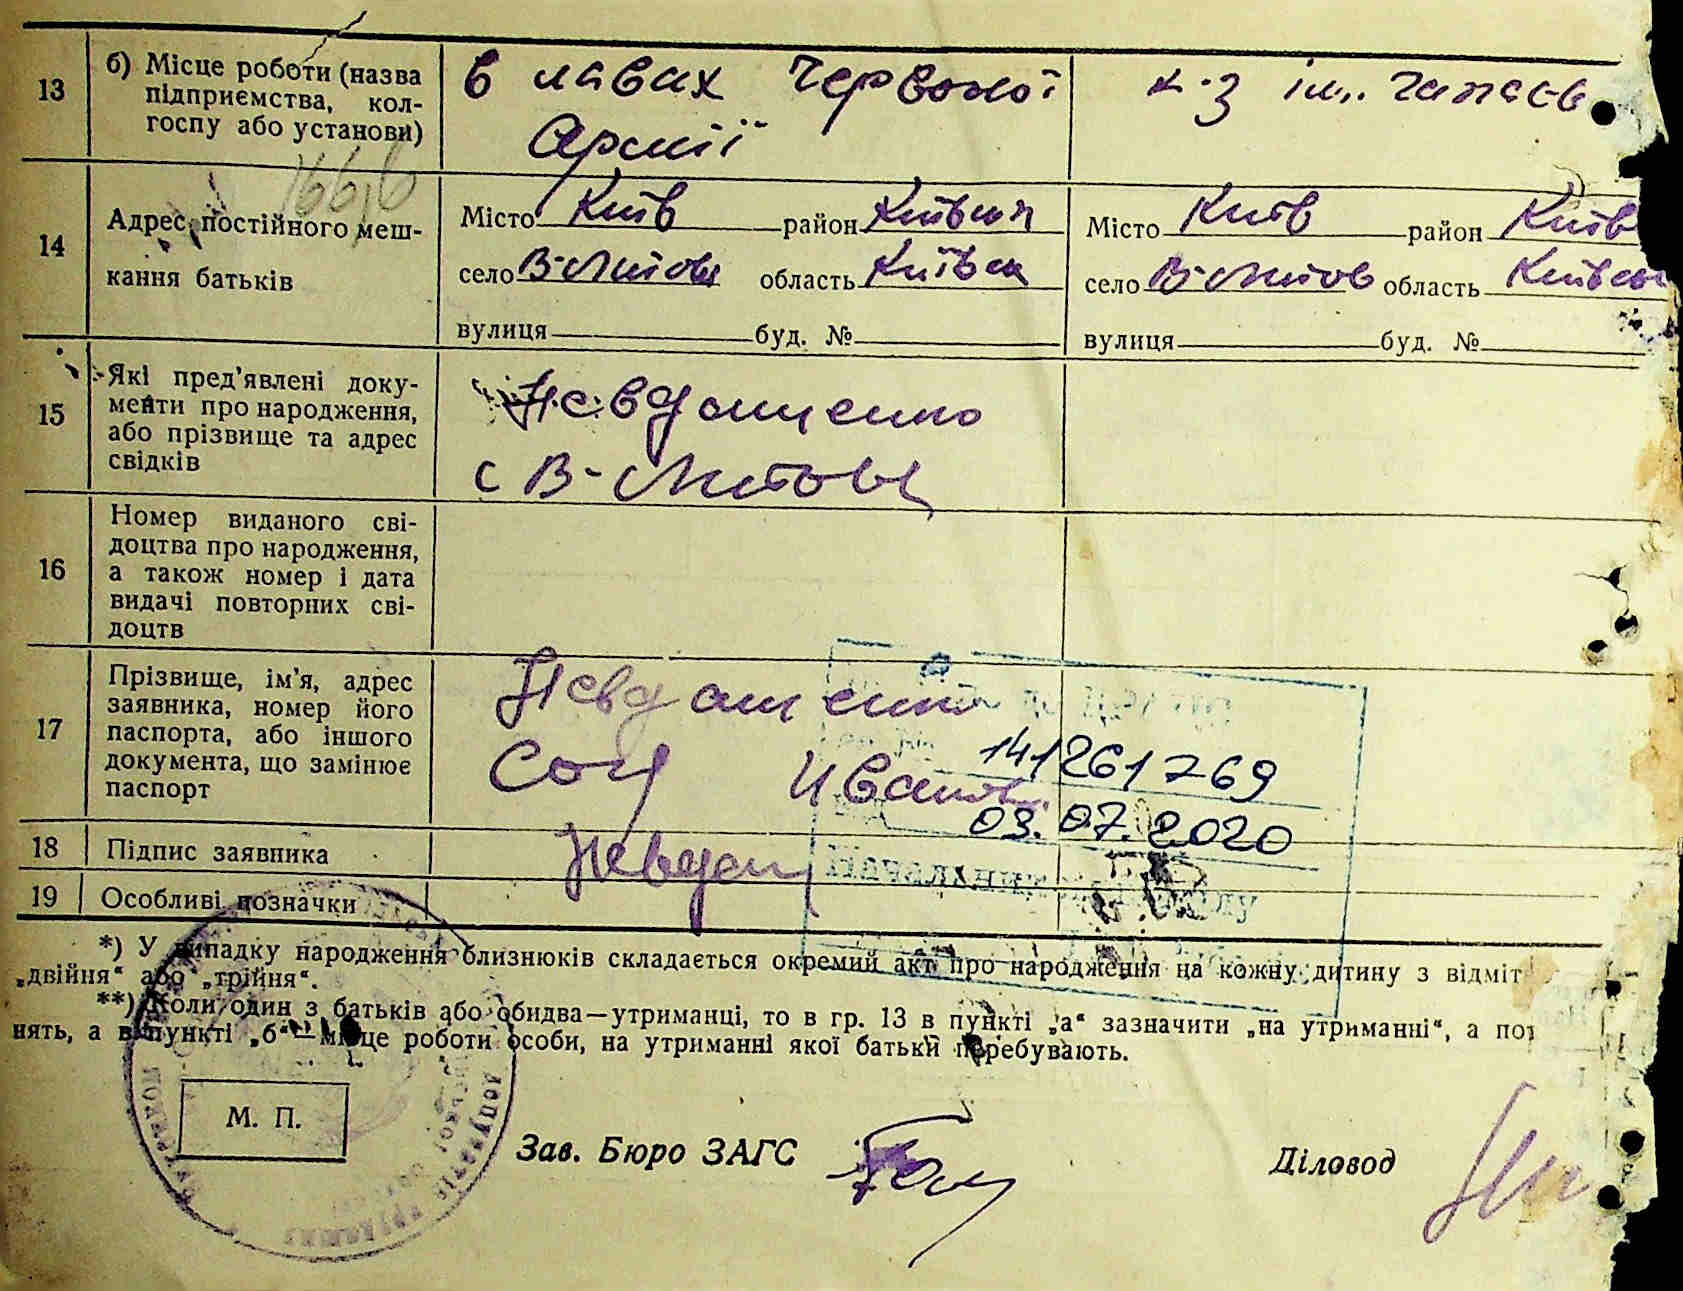 13 б) Місце роботи (назва підприємства, колгоспу або установи)
в лавах Червоної
Армії
к-з ім. Чапаєв
166,6
14 Адрес постійного меш-
кання батьків
Місто Київ район Київськ
село В-Литов область Київськ
вулиця буд. №
Місто Київ район Київ
село В-Литов область Київськ
вулиця буд. №
15 Які пред'явлені доку-
менти про народження,
або прізвище та адрес
свідків
с В-Литов
16 Номер виданого сві-
доцтва про народження,
а також номер і дата
видачі повторних сві-
доцтв
17 Прізвище, ім'я, адрес
заявника, номер його
паспорта, або іншого
документа, що замінює
паспорт
141261769
03.07.2020
18 Підпис заявника
19 Особливі позначки
*) У випадку народження близнюків складається окремий акт про народження на кожну дитину з відміт
„двійня“ або „трійня“.
**) Коли один з батьків або обидва—утриманці, то в гр. 13 в пункті „а“ зазначити „на утриманні“, а
нять, а в пункті „б“—місце роботи особи, на утриманні якої батьки перебувають.
М. П.
Зав. Бюро ЗАГС
Діловод